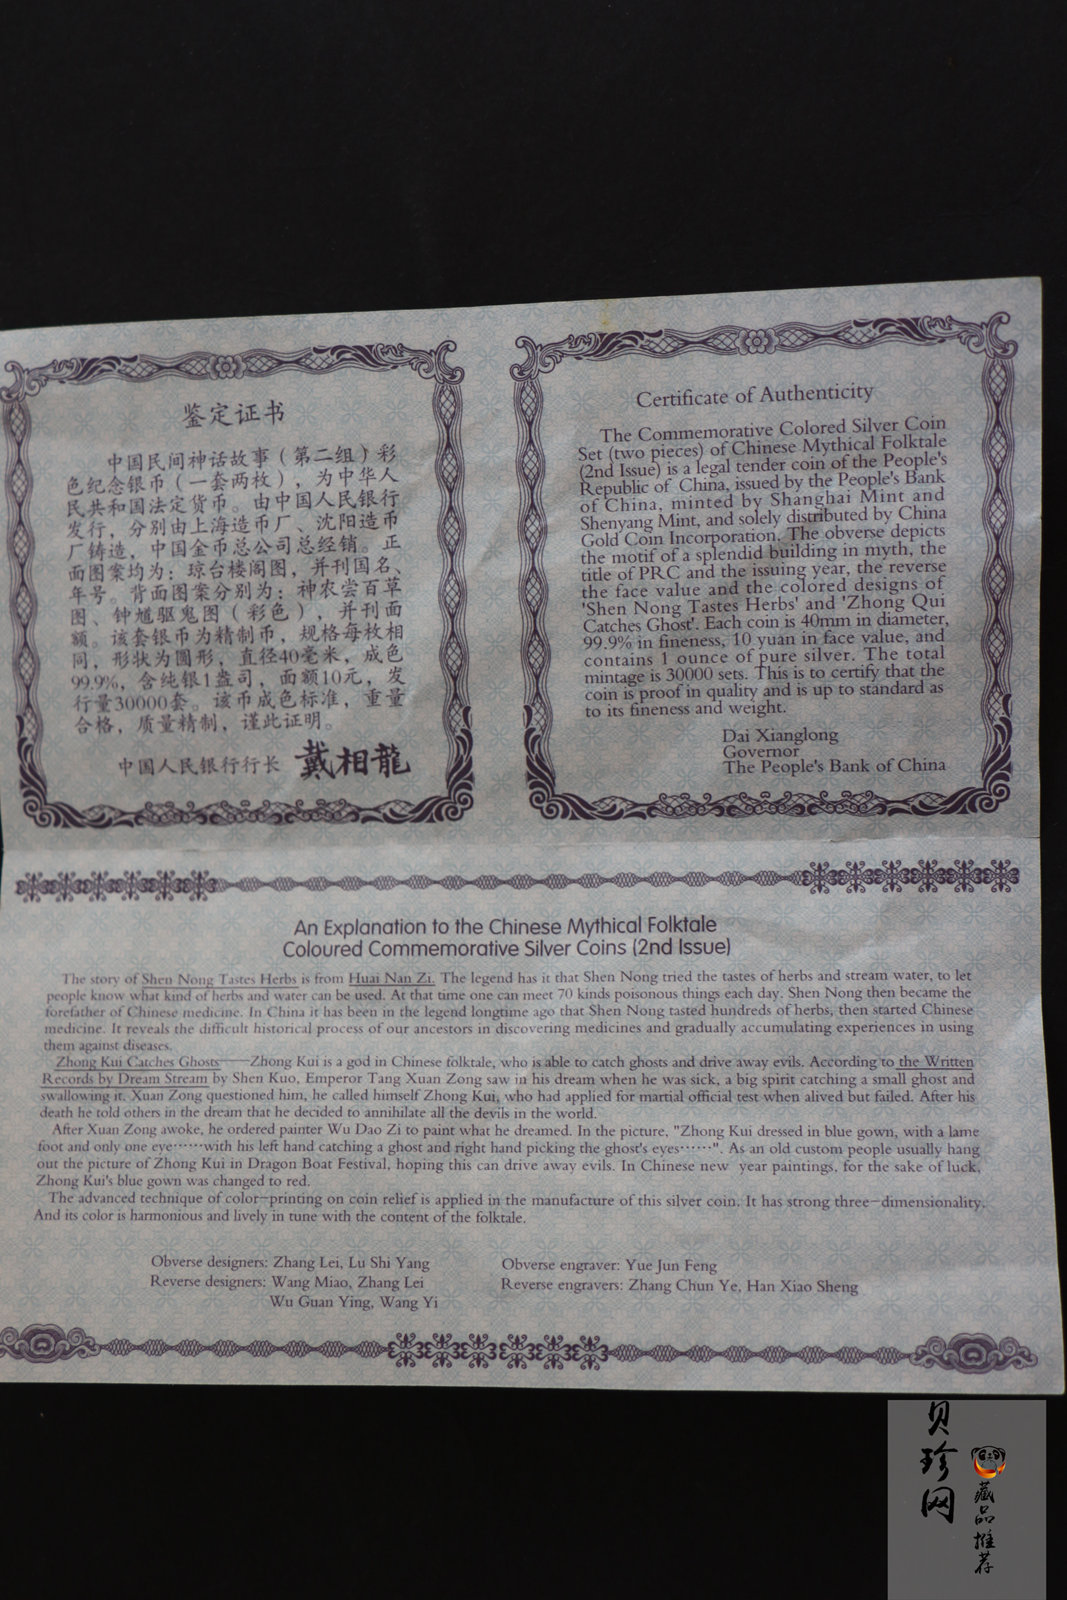 鉴定证书
中国民间神话故事（第二组）彩
色纪念银币（一套两枚），为中华人
民共和国法定货币。由中国人民银行
发行，分别由上海造币厂、沈阳造币
厂铸造，中国金币总公司总经销。正
面图案均为：琼台楼阁图，并刊国名、
年号。背面图案分别为：神农尝百草
图、钟馗驱鬼图（彩色），并刊面
额。该套银币为精制币，规格每枚相
同，形状为圆形，直径40毫米，成色
99.9%，含纯银1盎司，面额10元，发
行量30000套。该币成色标准，重量
合格，质量精制，谨此证明。
中国人民银行行长 戴相龍
Certificate of Authenticity
The Commemorative Colored Silver Coin
Set (two pieces) of Chinese Mythical Folktale
(2nd Issue) is a legal tender coin of the People's
Republic of China, issued by the People's Bank
of China, minted by Shanghai Mint and
Shenyang Mint, and solely distributed by China
Gold Coin Incorporation. The obverse depicts
the motif of a splendid building in myth, the
title of PRC and the issuing year, the reverse
the face value and the colored designs of
'Shen Nong Tastes Herbs' and 'Zhong Qui
Catches Ghost'. Each coin is 40mm in diameter,
99.9% in fineness, 10 yuan in face value, and
contains 1 ounce of pure silver. The total
mintage is 30000 sets. This is to certify that the
coin is proof in quality and is up to standard as
to its fineness and weight.
Dai Xianglong
Governor
The People's Bank of China
An Explanation to the Chinese Mythical Folktale
Coloured Commemorative Silver Coins (2nd Issue)
The story of Shen Nong Tastes Herbs is from Huai Nan Zi. The legend has it that Shen Nong tried the tastes of herbs and stream water, to let
people know what kind of herbs and water can be used. At that time one can meet 70 kinds poisonous things each day. Shen Nong then became the
forefather of Chinese medicine. In China it has been in the legend longtime ago that Shen Nong tasted hundreds of herbs, then started Chinese
medicine. It reveals the difficult historical process of our ancestors in discovering medicines and gradually accumulating experiences in using
them against diseases.
Zhong Kui Catches Ghosts——Zhong Kui is a god in Chinese folktale, who is able to catch ghosts and drive away evils. According to the Written
Records by Dream Stream by Shen Kuo, Emperor Tang Xuan Zong saw in his dream when he was sick, a big spirit catching a small ghost and
swallowing it. Xuan Zong questioned him, he called himself Zhong Kui, who had applied for martial official test when alived but failed. After his
death he told others in the dream that he decided to annihilate all the devils in the world.
After Xuan Zong awoke, he ordered painter Wu Dao Zi to paint what he dreamed. In the picture, "Zhong Kui dressed in blue gown, with a lame
foot and only one eye······with his left hand catching a ghost and right hand picking the ghost's eyes······". As an old custom people usually hang
out the picture of Zhong Kui in Dragon Boat Festival, hoping this can drive away evils. In Chinese new year paintings, for the sake of luck,
Zhong Kui's blue gown was changed to red.
The advanced technique of color-printing on coin relief is applied in the manufacture of this silver coin. It has strong three-dimensionality.
And its color is harmonious and lively in tune with the content of the folktale.
Obverse designers: Zhang Lei, Lu Shi Yang
Reverse designers: Wang Miao, Zhang Lei
Wu Guan Ying, Wang Yi
Obverse engraver: Yue Jun Feng
Reverse engravers: Zhang Chun Ye, Han Xiao Sheng
贝珍网
藏品推荐